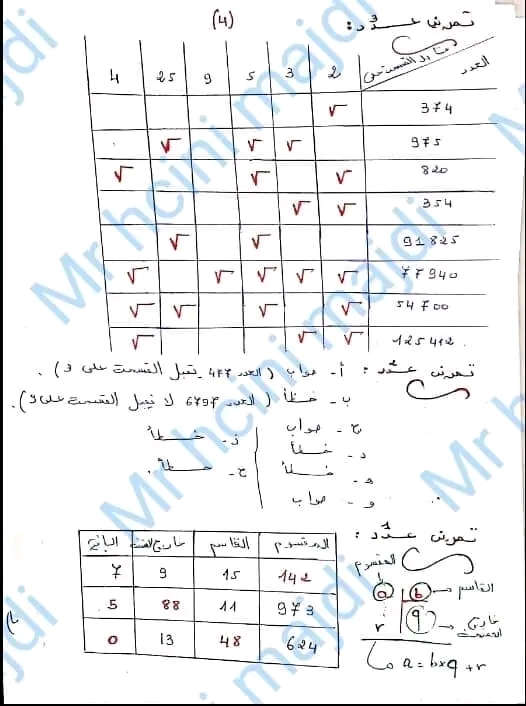 (4)
تمرين عدد:
العدد | قابل القسمة على | 2 | 3 | 5 | 9 | 25 | 4
374 | √
975 | √ √ √
820 | √ √ √
354 | √ √
91825 | √ √
77940 | √ √ √ √ √
54700 | √ √ √ √
125412 | √ √ √
تمرين عدد : أ- صواب (العدد 477 يقبل القسمة على 9).
ب- خطأ (العدد 6797 لا يقبل القسمة على 9).
ج- صواب
د- خطأ
ه- خطأ
و- صواب
ز- خطأ
ح- خطأ.
تمرين عدد :
المقسوم | القاسم | خارج القسمة | الباقي
142 | 15 | 9 | 7
973 | 11 | 88 | 5
624 | 48 | 13 | 0
المقسوم
القاسم
a b
r q
خارج القسمة
a = b×q + r
Mr hcini majdi